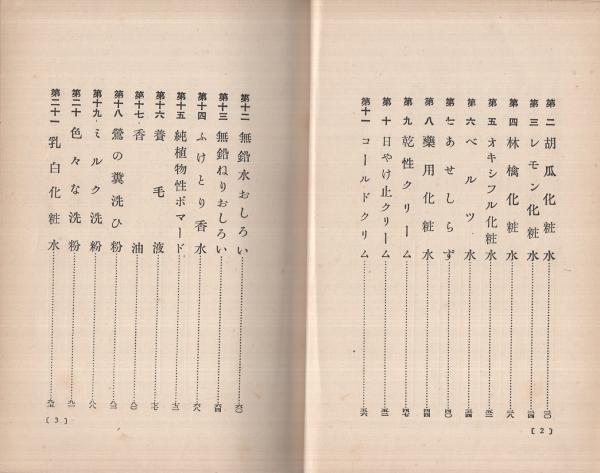 第二 胡瓜化粧水
第三 レモン化粧水
第四 林檎化粧水
第五 オキシフル化粧水
第六 ベルツ水
第七 あせしらず
第八 藥用化粧水
第九 乾性クリーム
第十 日やけ止クリーム
第十一 コールドクリム
[2]
第十二 無鉛水おしろい
第十三 無鉛ねりおしろい
第十四 ふけとり香水
第十五 純植物性ポマード
第十六 養毛液
第十七 香油
第十八 鶯の糞洗ひ粉
第十九 ミルク洗粉
第二十 色々な洗粉
第二十一 乳白化粧水
[3]